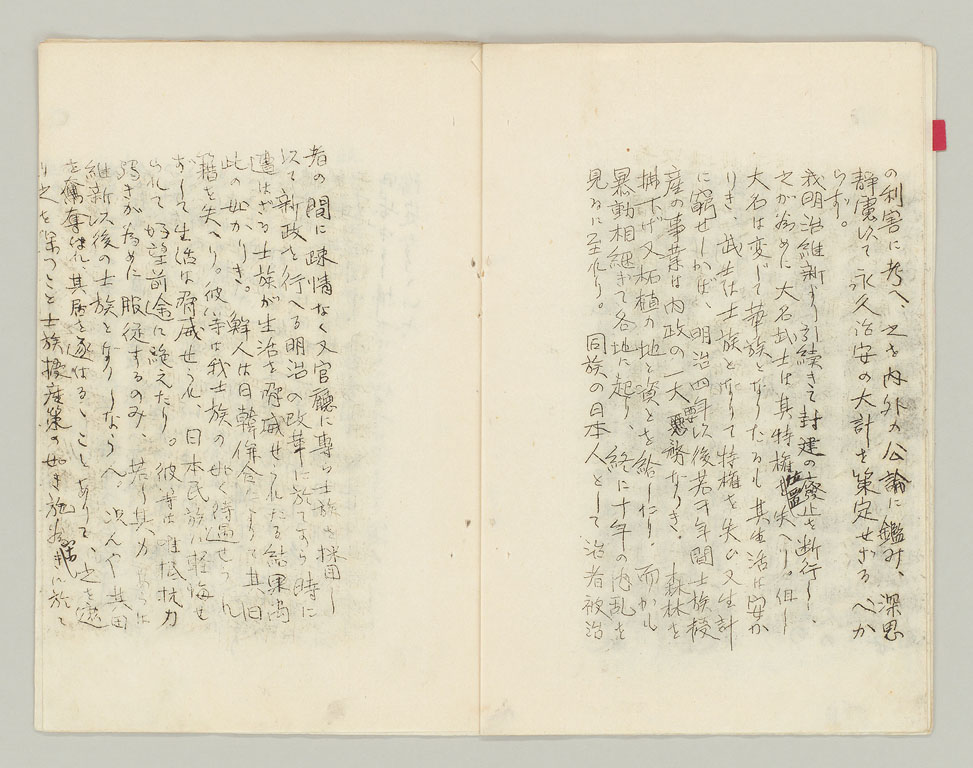 の利害に考へ、之を内外の公論に鑑み、深思
静慮以て永久治安の大計を策定せざるべか
らず。
我明治維新より引続きて封建の廃止を断行し、
之が為めに大名武士は其特権を失へり。但し
大名は変じて華族となりたるも其生活は安か
りき、武士は士族となりて特権を失ひ又生計
に窮せしかば、明治四年以後若干年間士族授
産の事業は内政の一大要務なりき。森林を
払下げ又拓植の地と資とを給したり。而かも
暴動相継ぎて各地に起り、終に十年の内乱を
見るに至れり。同族の日本人として治者被治
者の間に疎情なく又官庁に専ら士族を
以て新政を行へる明治の改革に於てすら時に
遭はざる士族が生活を脅威せられたる結果
此の如かりき。鮮人は日韓併合によりて其国
籍を失へり。彼等は我士族の如く待遇せられ
ずして生活は脅威せられ、日本民族に軽侮せ
られて好望前途に絶えたり。彼等は唯抵抗力
弱きが為めに服徒するのみ、若し其力
維新以後の士族となりしならん、况んや其田
を奪はれ、其居を逐はるゝことありて、之を
り之を保つこと士族授産策の如き施為に於て